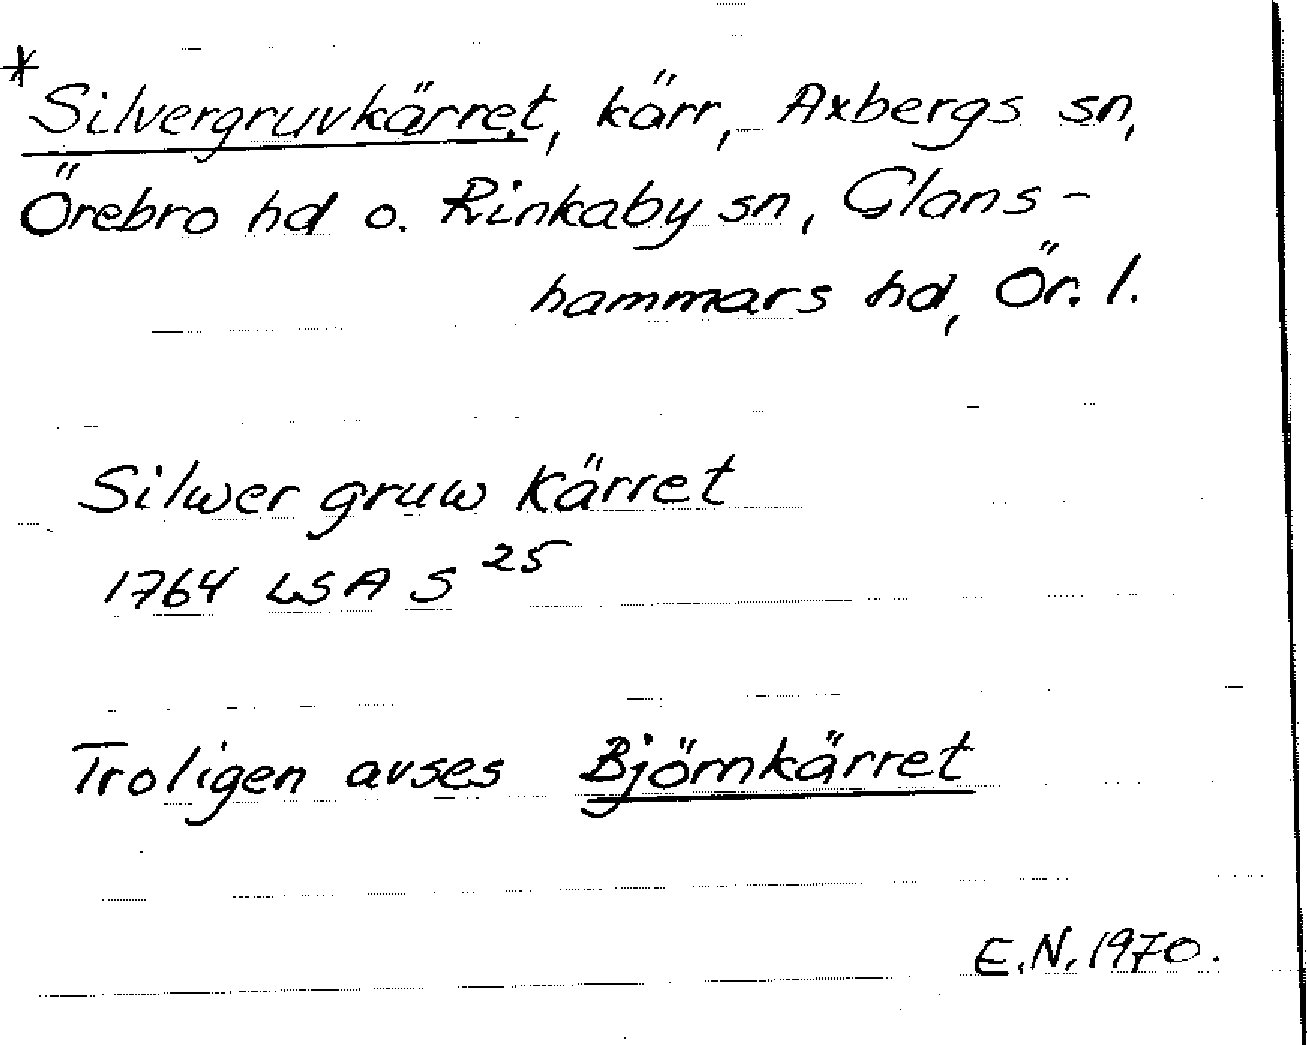 * Silvergruvkärret, kärr, Axbergs sn,
Örebro hd o. Rinkaby sn, Glans-
hammars hd, Ör. l.
Silwer gruw Kärret
1764 LSA S 25
Troligen avses Björnkärret
E.N. 1970.